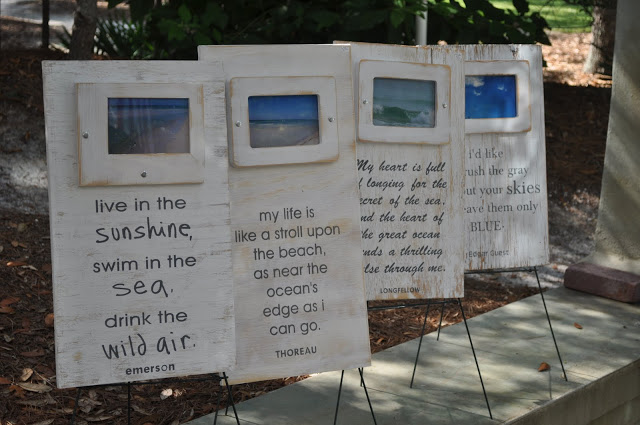 live in the
sunshine,
swim in the
sea,
drink the
wild air.
emerson
my life is
like a stroll upon
the beach,
as near the
ocean's
edge as i
can go.
THOREAU
My heart is full
of longing for the
secret of the sea,
and the heart of
the great ocean
sends a thrilling
pulse through me.
LONGFELLOW
i'd like
brush the gray
out your skies
leave them only
BLUE.
Edgar Guest